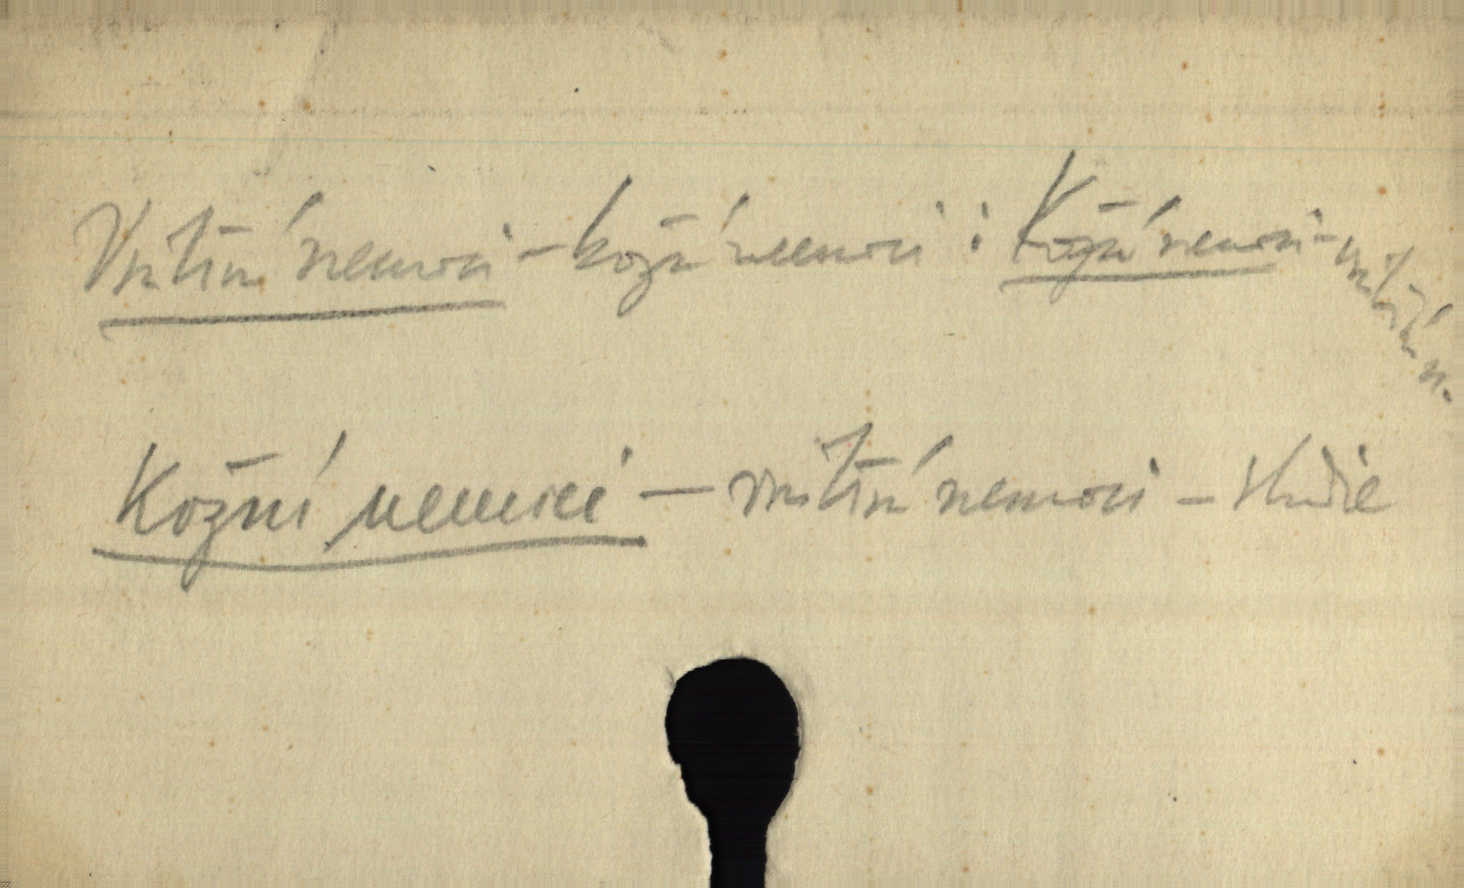 Vnitřní nemoci - kožní nemoci ; Kožní nemoci - vnitřní n.
Kožní nemoci - vnitřní nemoci - studie